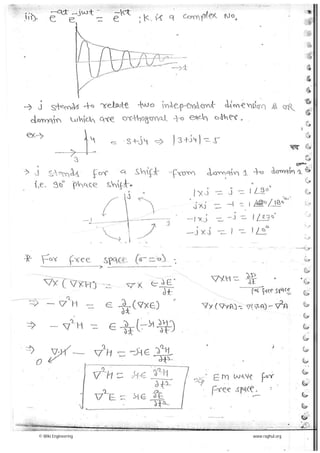 iii). e^-αt e^-jωt = e^-kt ; k is a complex No,
→ t
→ j stands to relate two independent dimention & or
domain which are orthogonal to each other.
ex→ 4 = 3+j4 ⇒ |3+j4| = 5
3
→ j stands for a shift from domain 1 to domain 2
i.e. 90° phase shift.
j 1xj = j = 1∠90°
jxj = -1 = 1∠180°
-1 1 -1xj = -j = 1∠270°
-j -jxj = 1 = 1∠0°
* For free space (σ=0) :
∇×(∇×H) = ∇× ∈ ∂E/∂t ∇×H = ∂D/∂t
for free space
⇒ -∇²H = ∈ ∂/∂t (∇×E) ∇×(∇×A) = ∇(∇·A) - ∇²A
⇒ -∇²H = ∈ ∂/∂t (-μ ∂H/∂t)
⇒ ∇·H - ∇²H = -μ∈ ∂²H/∂t²
0
∇²H = μ∈ ∂²H/∂t² ⇒ EM wave for
∇²E = μ∈ ∂²E/∂t² free space.
© Wiki Engineering www.raghul.org